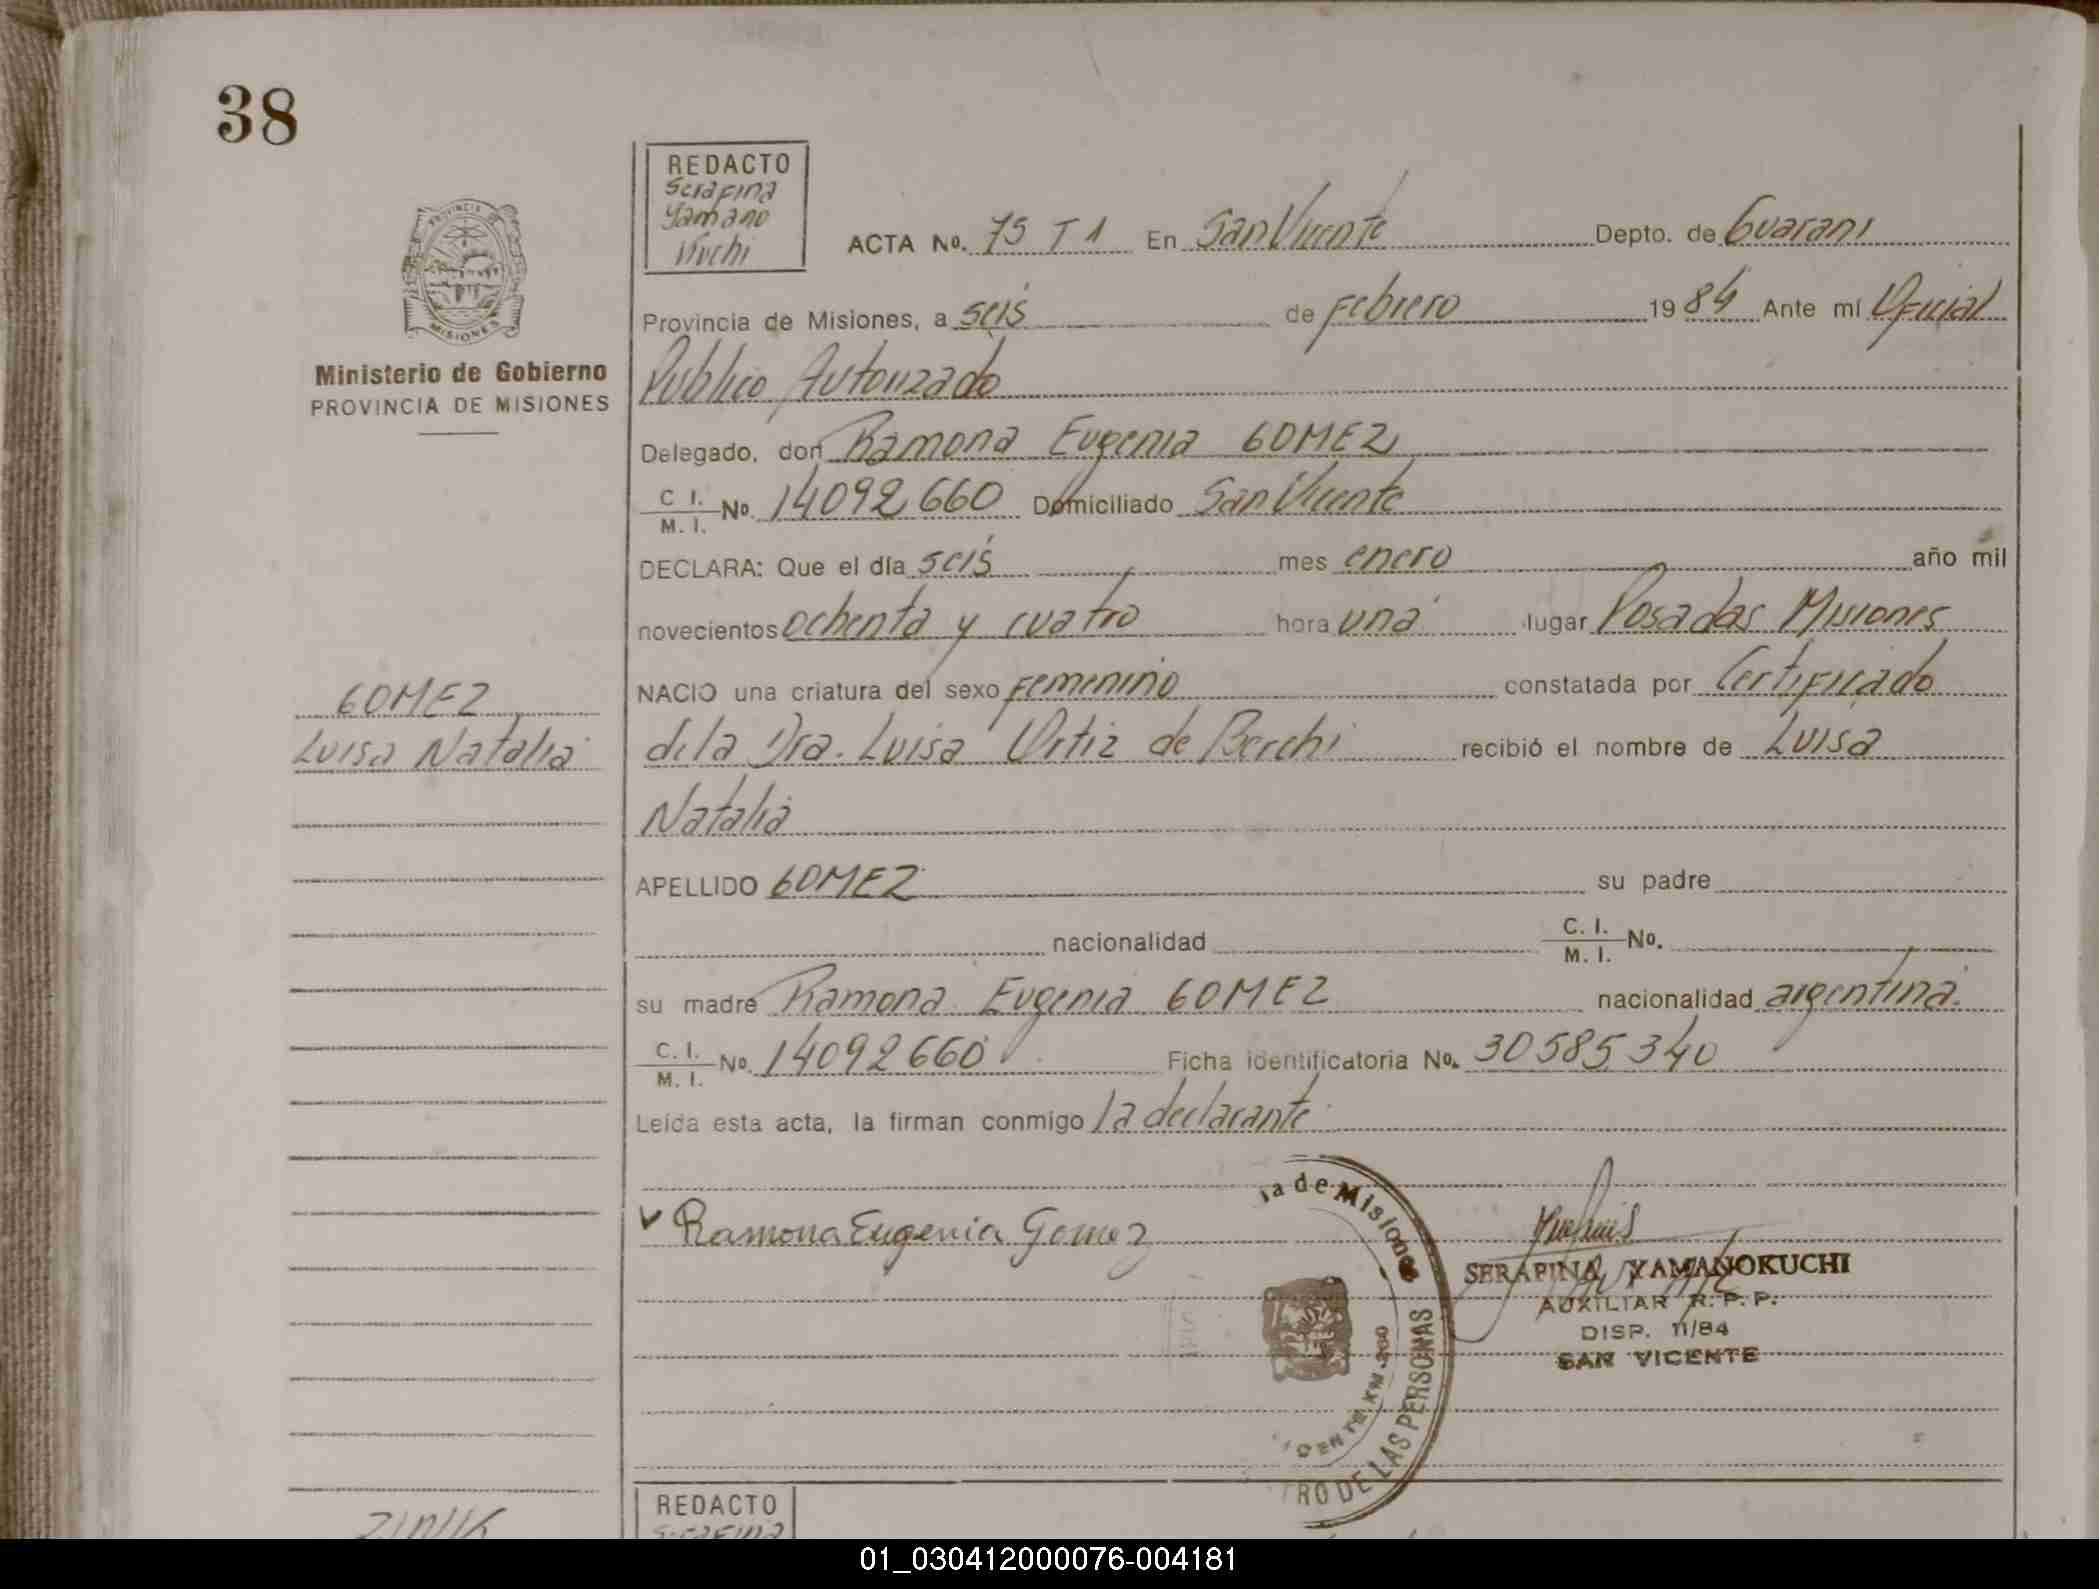 38
REDACTO
Serafina
Yamano
Kuchi
ACTA No. 75 T 1 En San Vicente Depto. de Guarani
PROVINCIA DE
MISIONES
Provincia de Misiones, a seis de febrero 1984 Ante mí Oficial
Ministerio de Gobierno
PROVINCIA DE MISIONES
Publico Autorizado
Delegado, don Ramona Eugenia GOMEZ
C I.
M. I. No. 14092660 Domiciliado San Vicente
DECLARA: Que el día seis mes enero año mil
novecientos ochenta y cuatro hora una lugar Posadas Misiones
NACIO una criatura del sexo femenino constatada por Certificado
GOMEZ
Luisa Natalia
de la Dra. Luisa Ortiz de Berchi recibió el nombre de Luisa
Natalia
APELLIDO GOMEZ su padre
nacionalidad C. I.
M. I. No.
su madre Ramona Eugenia GOMEZ nacionalidad argentina.
C. I.
M. I. No. 14092660 Ficha identificatoria No. 30585340
Leída esta acta, la firman conmigo la declarante
Ramona Eugenia Gomez
ia de Misiones
RO DE LAS PERSONAS
SERAFINA YAMANOKUCHI
AUXILIAR R. P. P.
DISP. 11/84
SAN VICENTE
REDACTO
Serafina
01_030412000076-004181